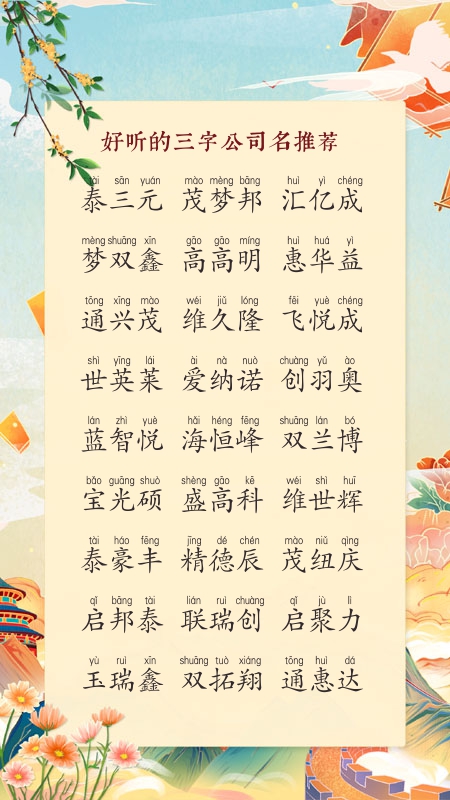 好听的三字公司名推荐
tài sān yuán mào mèng bāng huì yì chéng
泰三元 茂梦邦 汇亿成
mèng shuāng xīn gāo gāo míng huì huá yì
梦双鑫 高高明 惠华益
tōng xīng mào wéi jiǔ lóng fēi yuè chéng
通兴茂 维久隆 飞悦成
shì yīng lái ài nà nuò chuàng yǔ ào
世英莱 爱纳诺 创羽奥
lán zhì yuè hǎi héng fēng shuāng lán bó
蓝智悦 海恒峰 双兰博
bǎo guāng shuò shèng gāo kē wéi shì huī
宝光硕 盛高科 维世辉
tài háo fēng jīng dé chén mào niǔ qìng
泰豪丰 精德辰 茂纽庆
qǐ bāng tài lián ruì chuàng qǐ jù lì
启邦泰 联瑞创 启聚力
yù ruì xīn shuāng tuò xiáng tōng huì dá
玉瑞鑫 双拓翔 通惠达